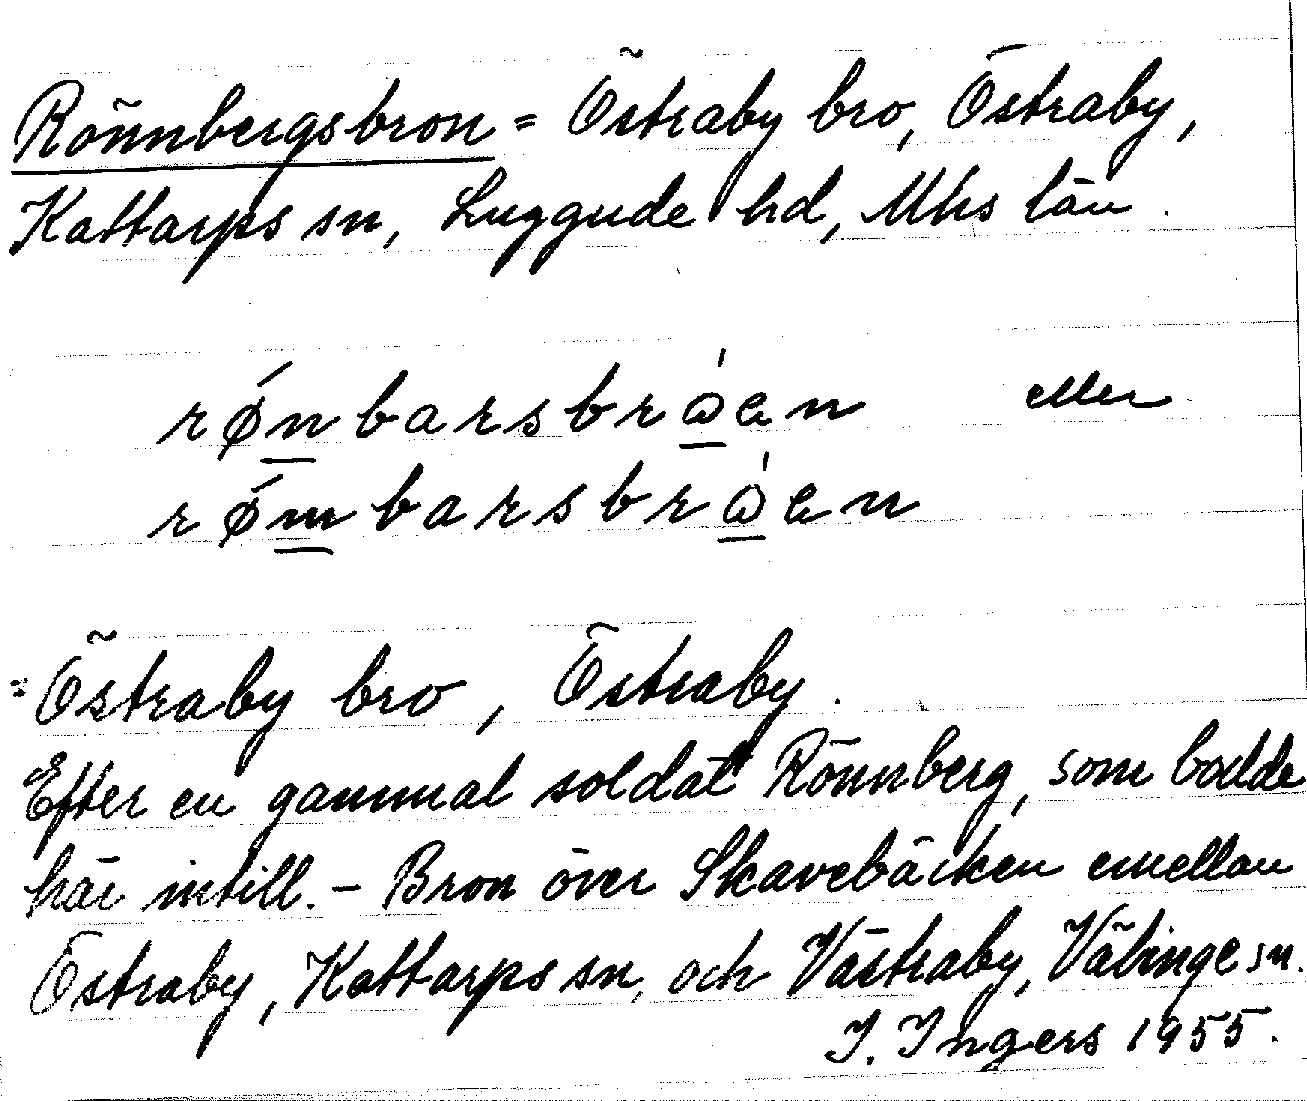 Rönnbergsbron = Östraby bro, Östraby,
Kattarps sn, Luggude hd, Mhs län.
rǿnbarsbrǻen eller
rǿmbarsbrǻen
= Östraby bro, Östraby.
Efter en gammal soldat Rönnberg, som bodde
här intill. – Bron över Skavebäcken emellan
Östraby, Kattarps sn, och Västraby, Välinge sn.
I. Ingers 1955.